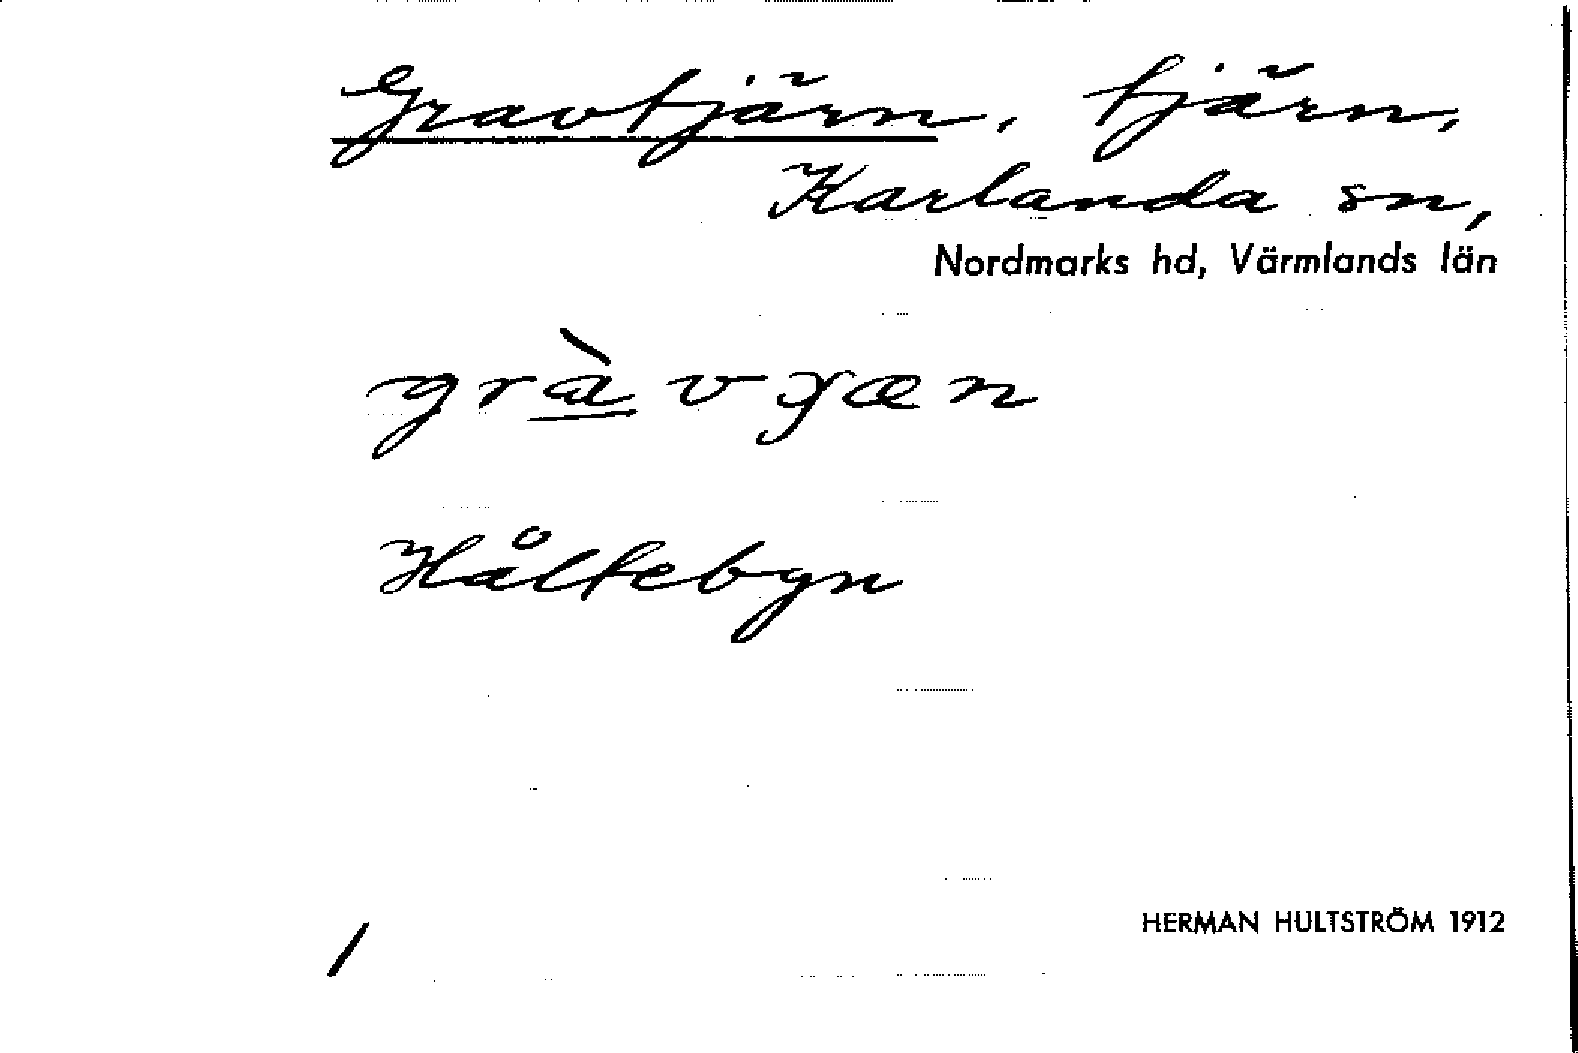 Gravtjärn, tjärn,
Karlanda sn,
Nordmarks hd, Värmlands län
Håltebyn
HERMAN HULTSTRÖM 1912
/